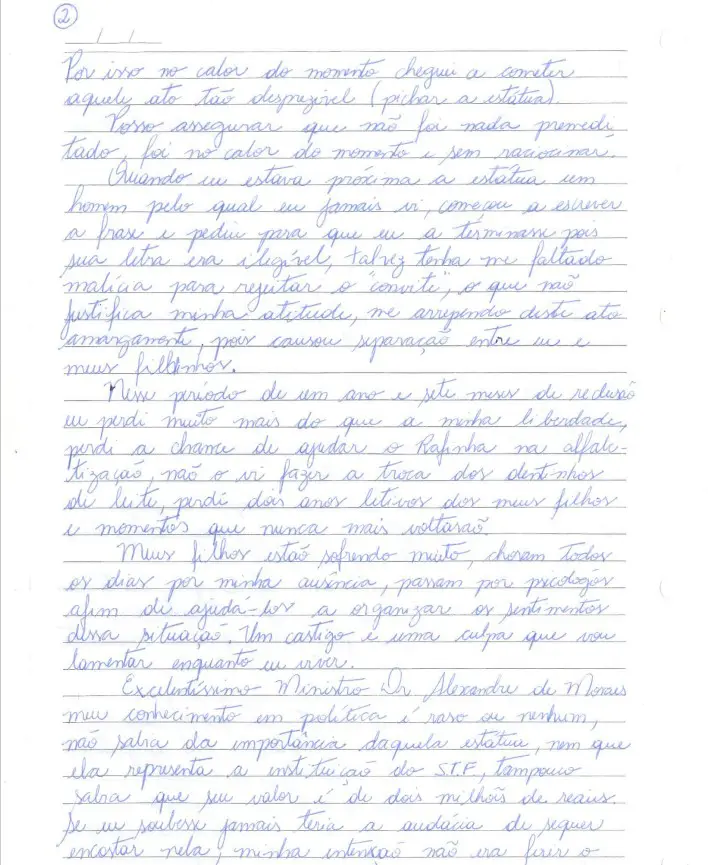 2
/ /
Por isso no calor do momento cheguei a cometer
aquele ato tão desprezível (pichar a estátua).
Posso assegurar que não foi nada premedi
tado, foi no calor do momento e sem raciocinar.
Quando eu estava próxima a estátua um
homem pelo qual eu jamais vi, começou a escrever
a frase e pediu para que eu a terminasse pois
sua letra era ilegível, talvez tenha me faltado
malícia para rejeitar o "convite", o que não
justifica minha atitude, me arrependo deste ato
amargamente, pois causou separação entre eu e
meus filhinhos.
Nesse período de um ano e sete meses de reclusão
eu perdi muito mais do que a minha liberdade,
perdi a chance de ajudar o Rafinha na alfabe-
tização, não o vi fazer a troca dos dentinhos
de leite, perdi dois anos letivos dos meus filhos
e momentos que nunca mais voltarão.
Meus filhos estão sofrendo muito, choram todos
os dias por minha ausência, passam por psicólogos
afim de ajudá-los a organizar os sentimentos
dessa situação. Um castigo e uma culpa que vou
lamentar enquanto eu viver.
Excelentíssimo Ministro Dr Alexandre de Moraes
meu conhecimento em política é raso ou nenhum,
não sabia da importância daquela estátua, nem que
ela representa a instituição do S.T.F, tampouco
sabia que seu valor é de dois milhões de reais.
Se eu soubesse jamais teria a audácia de sequer
encostar nela, minha intenção não era ferir o